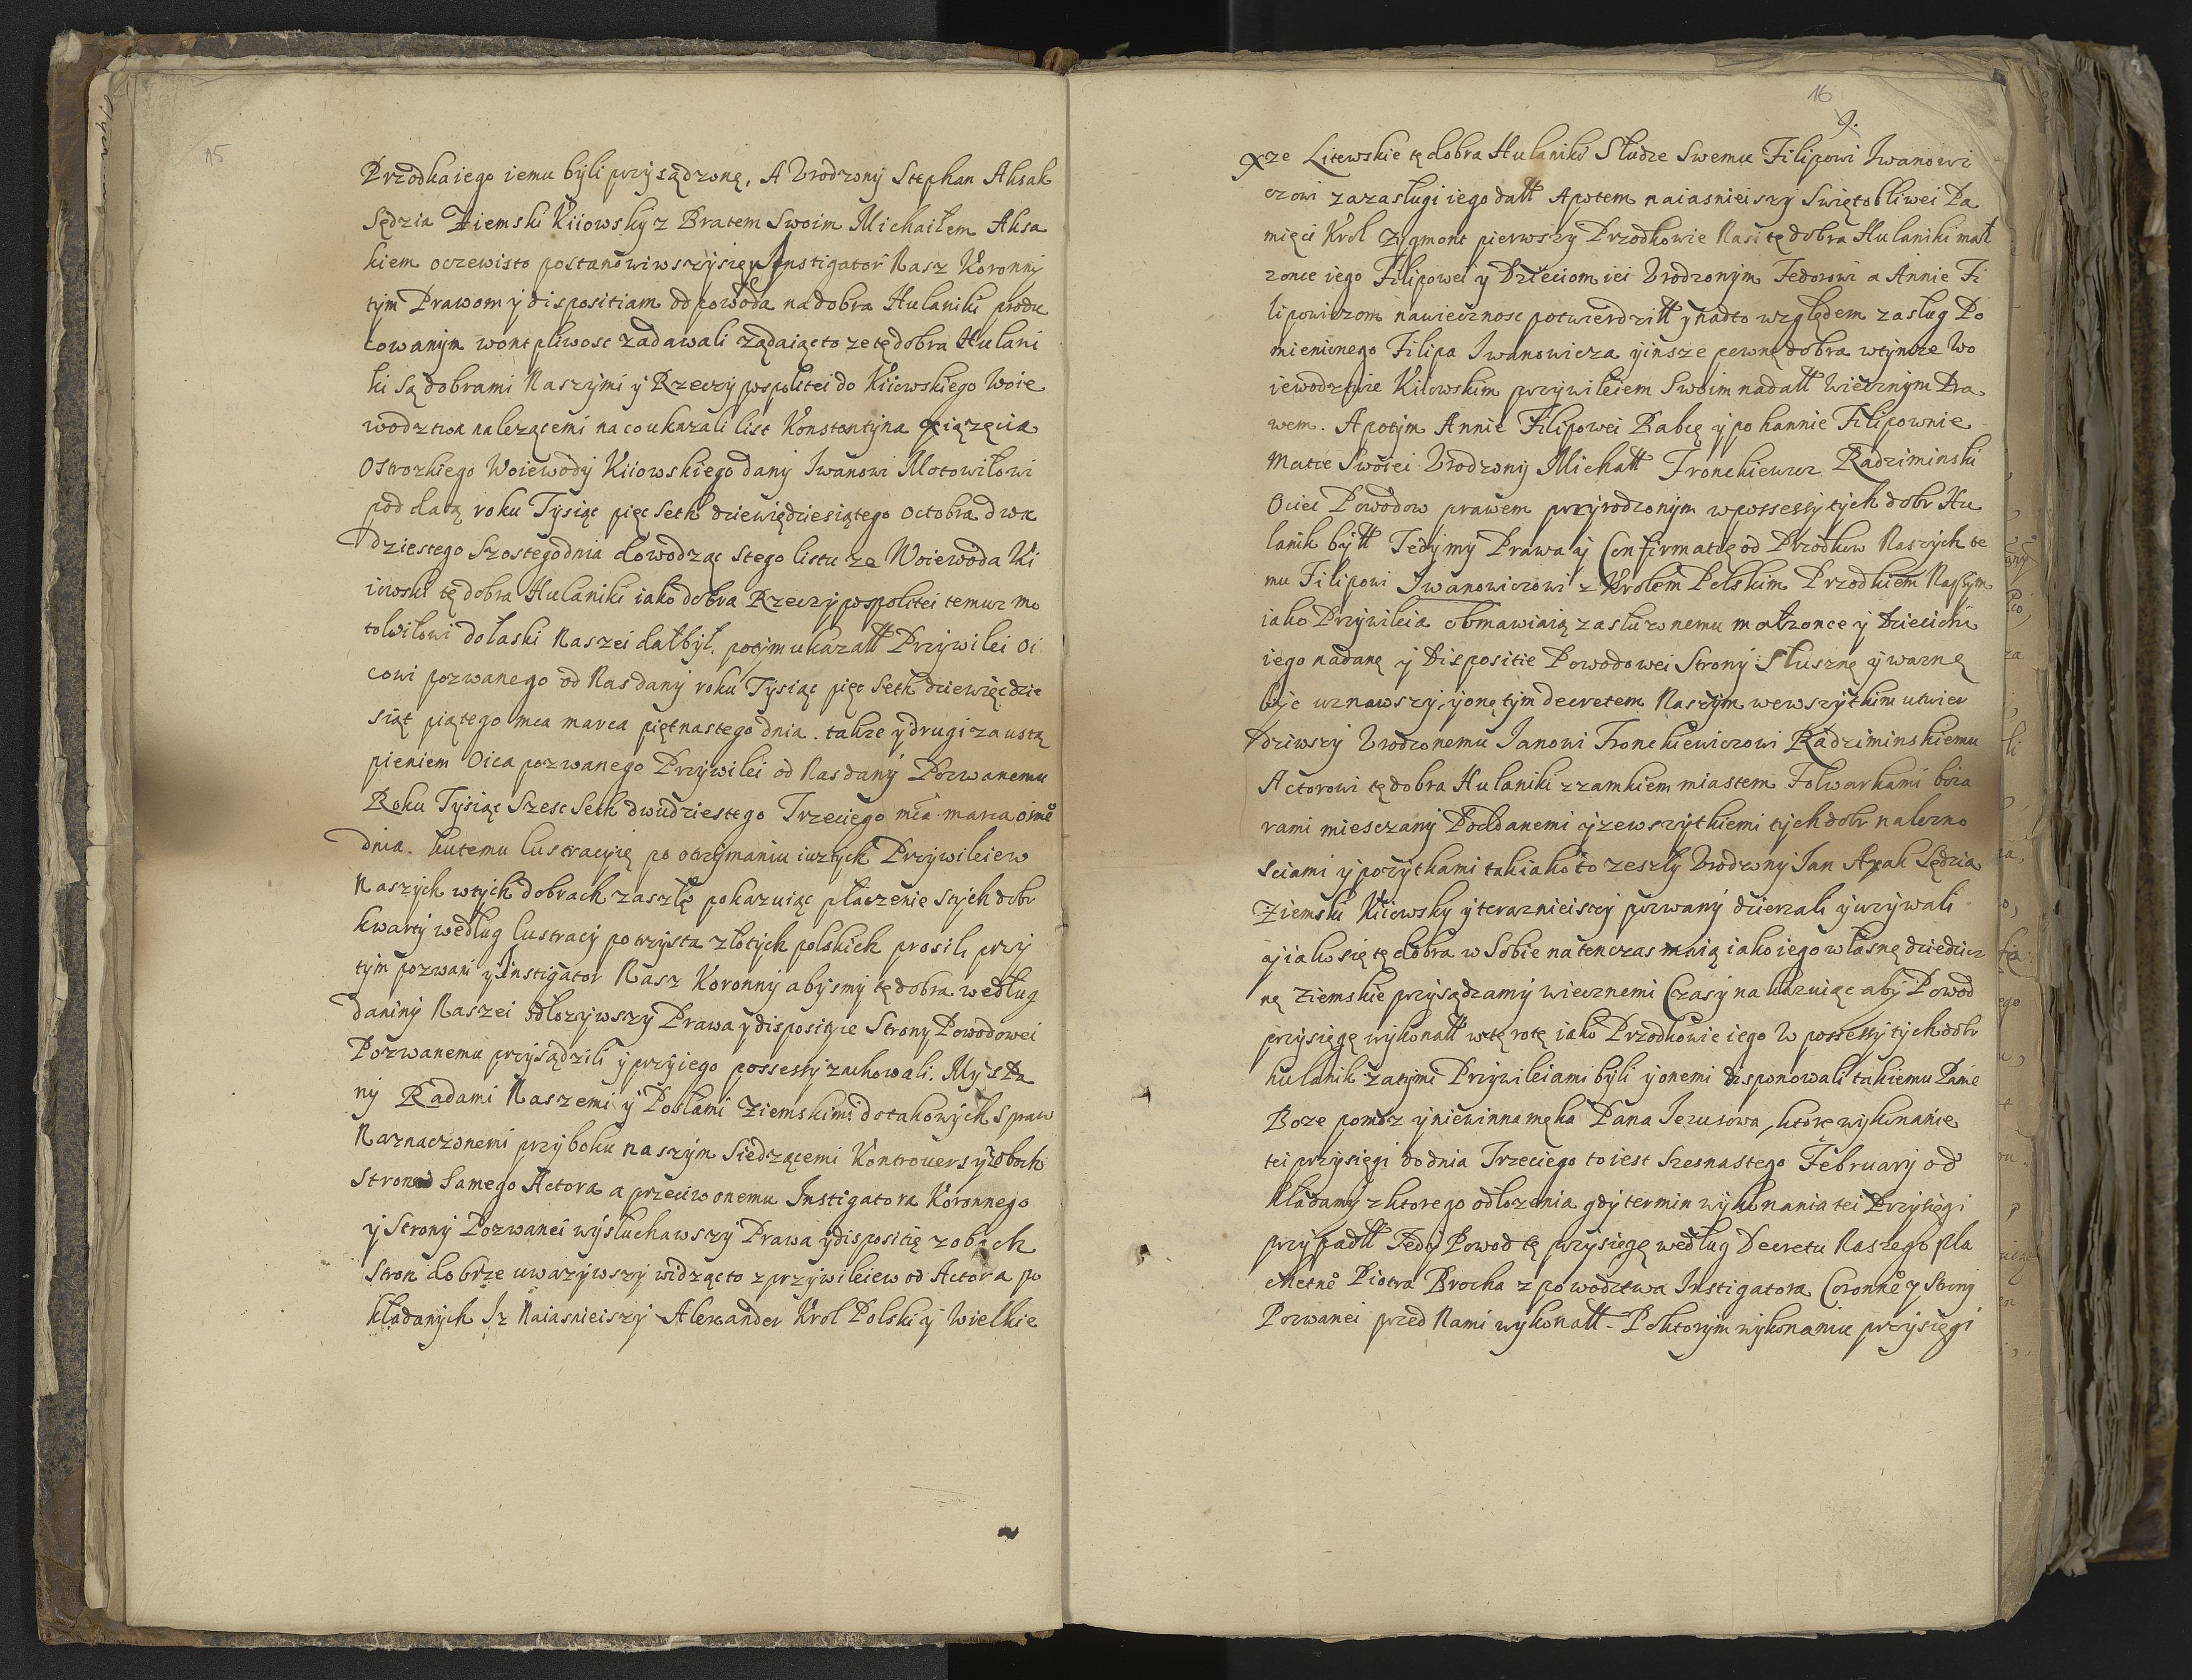 15
Przodka iego iemu byli przysądzonę, A Vrodzony Stephan Aksak
Sędzia Ziemski Kiiowsky z Bratem Swoim Michaiłem Aksa
kiem oczewisto postanowiwszysię y Instigator Nasz Koronny
tym Prawom y dispositiam od powoda na dobra Hulaniki produ
cowanym wontpliwosc zadawali Ządaiącto ze tę dobra Hulani
ki Są dobrami Naszymi y Rzeczy pospolitei do Kiiowskiego Woie
wodztwa nalezącemi na co ukazali list Konstantyna xiązęcia
Ostrozkiego Woiewody Kiiowskiego dany Iwanowi Motowiłowi
pod datą roku Tysiąc pięc Seth dziewiędziesiątego Octobra dwa
dziestego Szostego dnia dowodząc Stego listu ze Woiewoda Ki
iowski tę dobra Hulaniki iako dobra Rzeczy pospolitei temuz Mo
towiłowi do łaski Naszei dał był. potym ukazałł Przywilei Oi
cowi pozwanego od Nas dany roku Tysiąc pięc Seth dziewięcdzie
siąt piątego mca marca piętnastego dnia. takze y drugi za ustą
pieniem Oica pozwanego Przywilei od Nas dany Pozwanemu
Roku Tysiąc Szesc Seth dwudziestego Trzeciego mca marca osme
dnia. kutemu lustracyię po otrzymaniu iuz tych Przywileiew
Naszych wtych dobrach zaszłę pokazuiąc płaczenie Stych dobr
kwarty według lustracy po trzysta złotych polskich prosili przy
tym pozwani y Instigator Nasz Koronny abysmy tę dobra według
daniny Naszei odłozywszy Prawa y disposityie Strony Powodowei
Pozwanemu przysądzili y przy iego possessy zachowali. My s Pa
ny Radami Naszemi y Posłami Ziemskimi do takowych Spraw
Naznaczonemi przy boku naszym Siedzącemi Kontrouersy z oboch
Stron Samego Actora a przeciwo onemu Instigatora Koronnego
y Strony Pozwanei wysłuchawszy Prawa y dispositię z obach
Stron dobrze uwazywszy widząc to z przywileiew od Actora po
kładanych Iz Naiasnieiszy Alexander Krol Polski y Wielkie
16
9.
xze Litewskie tę dobra Hulaniki Słudze Swemu Filipowi Iwanowi
czowi za zasługi iego dałł A potem naiasnieiszy Swiętobliwei Pa
mięci Krol Zygmont pierwszy Przodkowie Nasi tę dobra Hulaniki małl
zonce iego Filipowei y Dzieciom iei Vrodzonym Fedorowi a Annie Fi
lipowiczom nawiecznosc potwierdziłł y nadto względem zasług Po
mienionego Filipa Iwanowicza y insze pewnę dobra wtymze Wo
iewodztwie Kiiowskim przywileiem Swoim nadałł Wiecznym Pra
wem. A potym Annie Filipowei Babcę y po hannie Filipownie
Matce Swoiei Vrodzony Michałł Fronckiewicz Radziminski
Ociec Powodow prawem przyrodzonym w possessy tych dobr Hu
lanik byłł Tedy my Prawa y Confirmatię od Przodkow Naszych te
mu Filipowi Iwanowiczowi z Krolem Polskim Przodkiem Naszym
iako Przywileia obmawiaią zasłuzonemu małzonce y Dziecióm
iego nadanę y Dispositie Powodowei Strony Słusznę y waznę
byc uznawszy, y onę tym decretem Naszym we wszytkim utwier
dziwszy Vrodzonemu Ianowi Fronckiewiczowi Radziminskiemu
Actorowi tę dobra Hulaniki z zamkiem miastem Folwarkami boia
rami miesczany Poddanemi y ze wszytkiemi tych dobr nalezno
sciami y pozytkami tak iako to zeszły Vrodzony Ian Axak Sędzia
Ziemski Kiiowsky y teraznieiszy pozwany dzierzali y uzywali
y iako się tę dobra w Sobie na ten czas maią iako iego własnę dziedicz
nę Ziemskie przysądzamy wiecznemi Czasy nakazuiąc aby Powod
przysięgę wykonałł wtę rotę iako Przodkowie iego W possessy tych dobr
hulanik za tymi Przywileiami byli y onemi disponowali tak iemu Panie
Boze pomoz y niewinna męka Pana Iezusowa, ktore wykonanie
tei przysięgi do dnia Trzeciego to iest Szesnastego February od
kładamy z ktorego odłozenia gdy termin wykonania tei Przysięgi
przypadłł Tedy Powod tę przysięgę według Decretu Naszego pla
cetnę Piotra Brocka z powodztwa Instigatora Coronne y Strony
Pozwanei przed Nami wykonałł. Po ktorym wykonaniu przysięgi